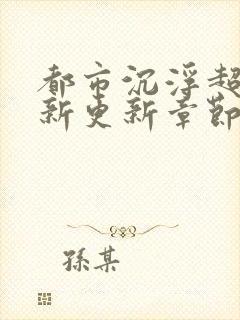 都市沉浮超
新更新章節
孫某